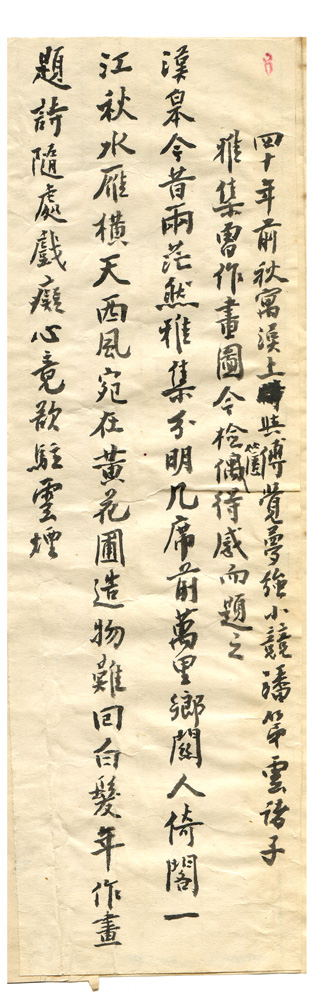 四十年前秋寓漢上與傅覺夢強小競潘笋雲諸子
雅集曾作畫圖今檢篋偶得感而題之
漢皋今昔兩茫然雅集分明几席前萬里鄉關人倚閣一
江秋水雁橫天西風宛在黃花圃造物難回白髮年作畫
題詩隨處戲癡心竟欲駐雲煙